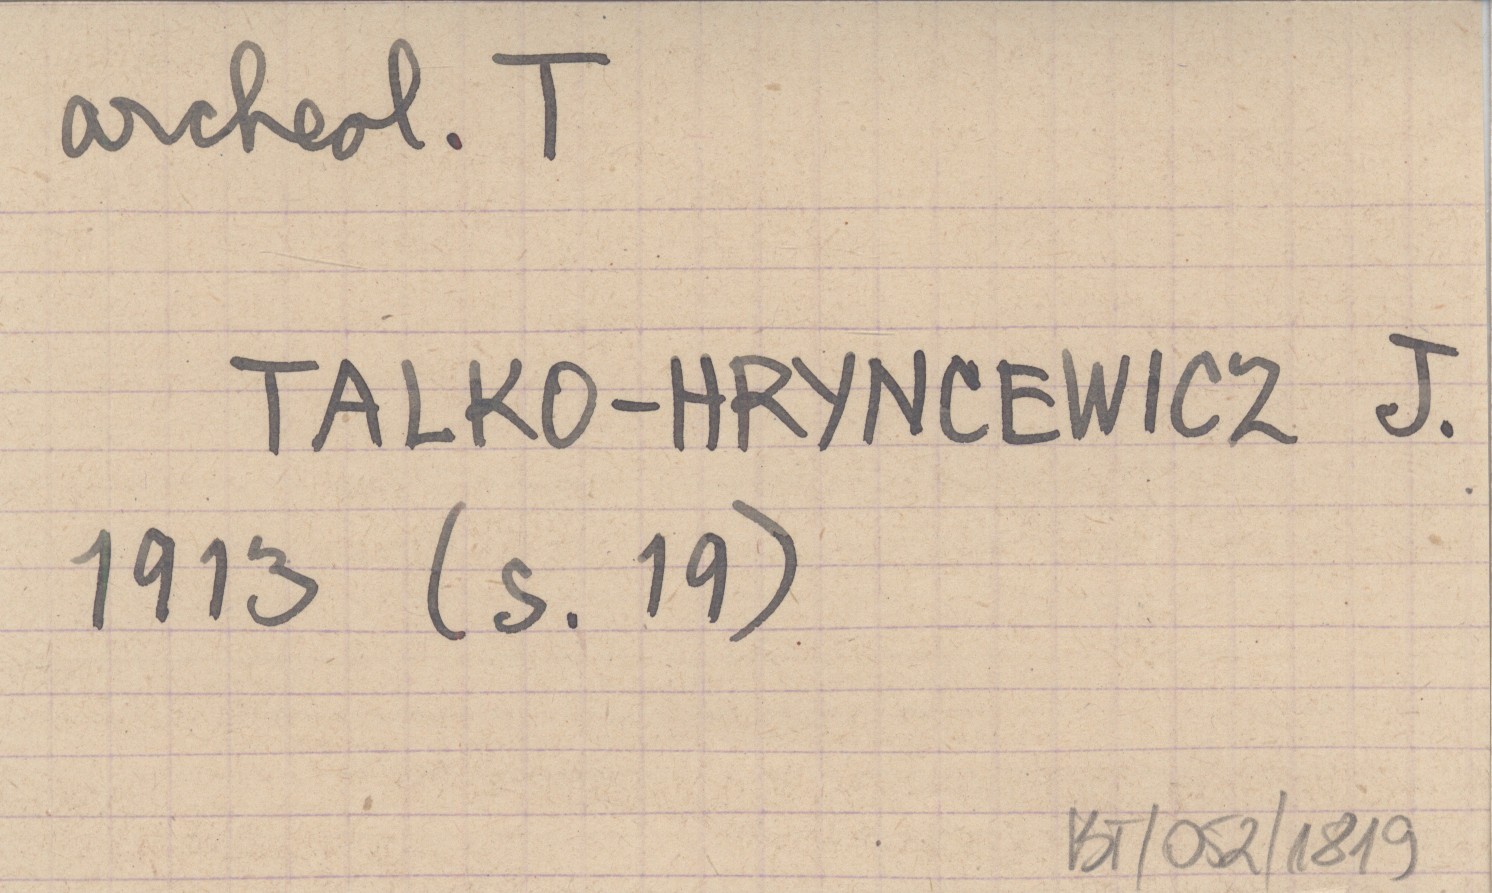 archeol. T
TALKO-HRYNCEWICZ J.
1913 (s. 19)
BT/052/1819